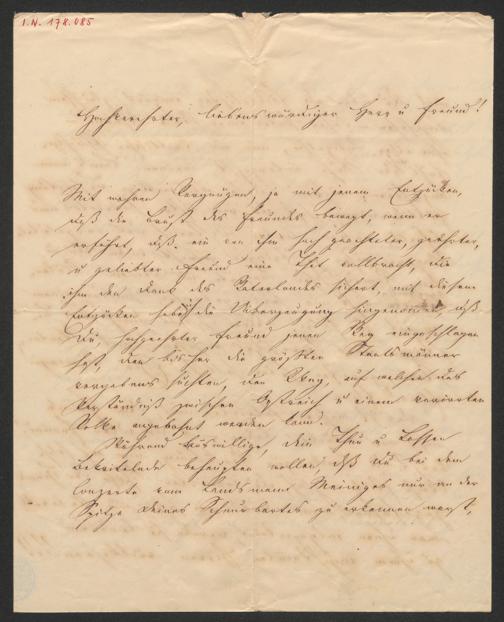 I.N. 178.085
Hochverehrter, liebenswürdiger Herr u Freund!
Mit wahrem Vergnügen, ja mit jenem Entzücken,
daß die Brust des Freundes bewegt, wenn er
erfährt, daß ein von ihm hoch geachteter, geehrter,
u geliebter Freund eine That vollbracht, die
ihm den Dank des Vaterlandes sichert, mit diesem
Entzücken habe ich die Ueberzeugung hingenommen, daß
Du, hochgeehrter Freund jenen Weg eingeschlagen
hast, den bisher die größten Staatsmänner
vergebens suchten, den Weg, auf welchem das
Verständniß zwischen Östreich u einem verirrten
Volke angebahnt werden kann.
Während Böswillige, Dein Thun u Lassen
bekrittelnde behaupten wollen, daß Du bei dem
Conzerte vom Landsmann nur an der
Spitze Deines Schnurbartes zu erkennen warst,